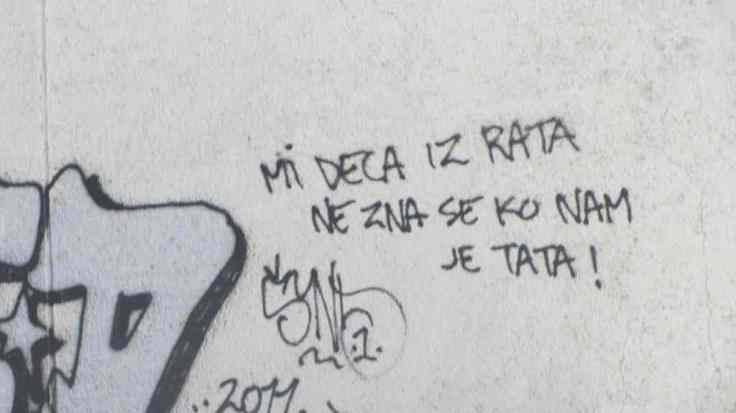 Mi DECA IZ RATA
NE ZNA SE KO NAM
JE TATA!
2011.